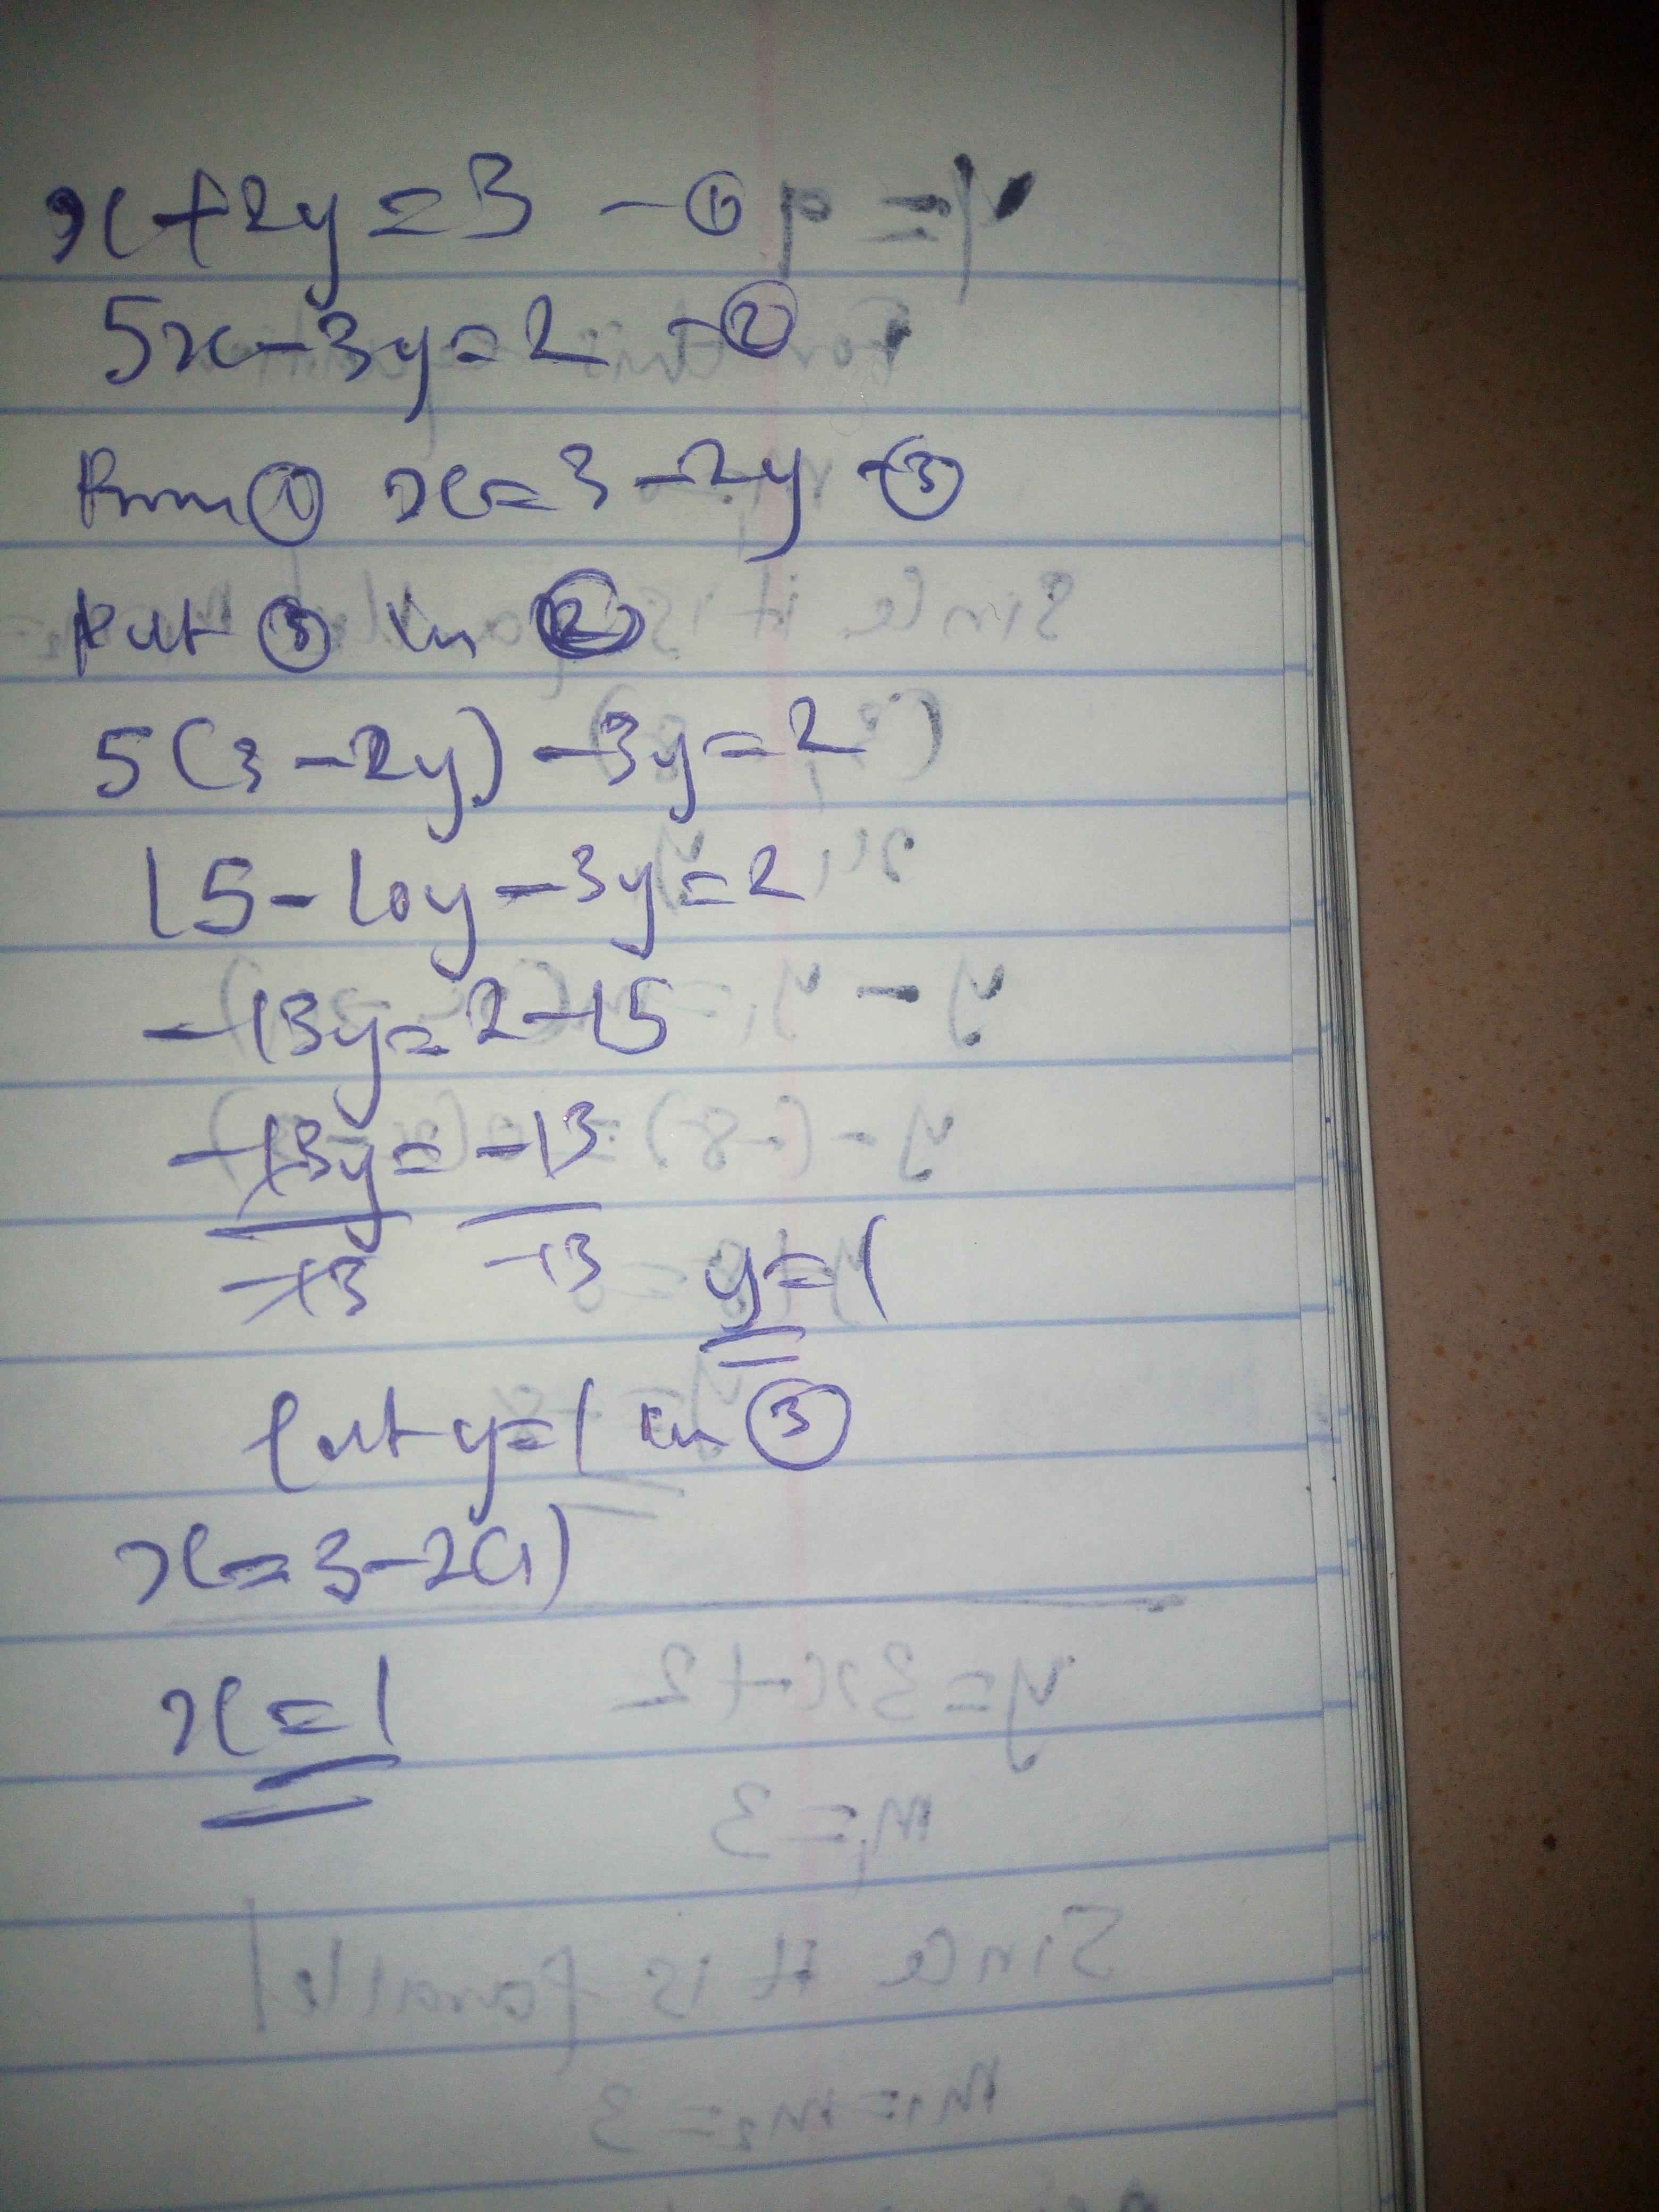 x+2y=3 - ①
5x-3y=2 - ②
From ① x=3-2y - ③
Put ③ in ②
5(3-2y)-3y=2
15-10y-3y=2
-13y=2-15
-13y=-13
-13 -13 y=1
Put y=1 in ③
x=3-2(1)
x=1